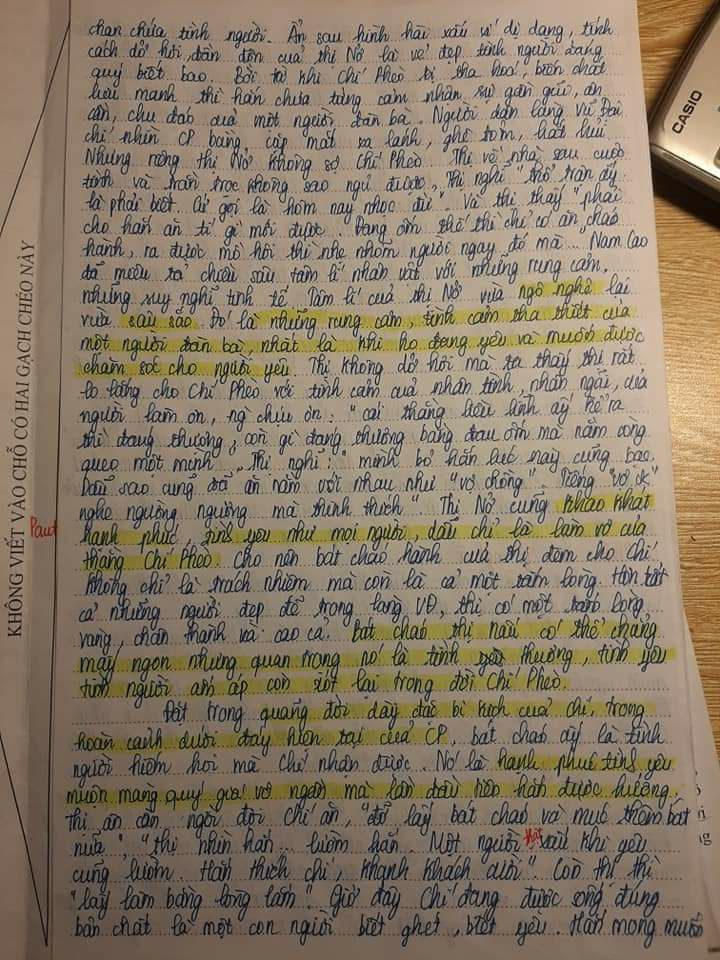 chan chứa tình người. Ẩn sau hình hài xấu xí dị dạng, tính
cách dở hơi, đần độn của thị Nở là vẻ đẹp tình người đáng
quý biết bao. Bởi từ khi Chí Phèo bị tha hoá, biến chất
lưu manh, thì hắn chưa từng cảm nhận sự gần gũi, ân
cần, chu đáo của một người đàn bà. Người dân làng Vũ Đại
chỉ nhìn CP bằng cặp mắt xa lánh, ghê tởm, hắt hủi.
Nhưng riêng thị Nở không sợ Chí Phèo. Thị về nhà sau cuộc
tình và trằn trọc không sao ngủ được, Thị nghĩ "thổ trận ấy
là phải biết. Cứ gọi là hôm nay nhọc đừ". Và thị thấy "phải
cho hắn ăn tí gì mới được. Đang ốm thế thì chỉ có ăn cháo
hành, ra được mồ hôi thì nhẹ nhõm người ngay đó mà... Nam Cao
đã miêu tả chiều sâu tâm lí nhân vật với những rung cảm,
những suy nghĩ tinh tế. Tâm lí của thị Nở vừa ngô nghê lại
vừa sâu sắc. Đó là những rung cảm, tình cảm tha thiết của
một người đàn bà, nhất là khi họ đang yêu và muốn được
chăm sót cho người yêu. Thị không dở hơi mà ta thấy thị rất
lo lắng cho Chí Phèo với tình cảm của nhân tình, nhân ngãi, của
người làm ơn, ng chịu ơn: "cái thằng liều lĩnh ấy kể ra
thì đáng thương, còn gì đáng thương bằng đau ốm mà nằm còng
queo một mình". Thị nghĩ: "mình bỏ hắn lúc này cũng bạc.
Dẫu sao cũng đã ăn nằm với nhau như "vợ chồng". Tiếng "vợ ck"
nghe ngường ngượng mà thinh thích". Thị Nở cũng khao khát
hạnh phúc, tình yêu như mọi người, dẫu chỉ là làm vợ của
thằng Chí Phèo. Cho nên bát cháo hành của thị đem cho Chí
không chỉ là trách nhiệm mà còn là cả một tấm lòng. Hơn tất
cả những người đẹp đẽ trong làng VĐ, thị có một tấm lòng
vàng, chân thành và cao cả. Bát cháo thị nấu có thể chẳng
mấy ngon nhưng quan trọng nó là tình yêu thương, tình yêu
tình người ấm áp còn sót lại trong đời Chí Phèo.
Đặt trong quãng đời dày đặc bi kịch của chí, trong
hoàn cảnh dưới đáy hiện tại của CP, bát cháo ấy là tình
người hiếm hoi mà Chí nhận được. Nó là hạnh phúc tình yêu
muộn màng quý giá vô ngần mà lần đầu tiên hắn được hưởng.
Thị ân cần ngồi đợi Chí ăn, "đỡ lấy bát cháo và múc thêm bát
nữa", "thị nhìn hắn.. lườm hắn. Một người thật xấu khi yêu
cũng lườm. Hắn thích chí, khanh khách cười". Còn thị thì
"lấy làm bằng lòng lắm". Giờ đây Chí đang được sống đúng
bản chất là một con người biết ghét, biết yêu. Hắn mong muốn
KHÔNG VIẾT VÀO CHỖ CÓ HAI GẠCH CHÉO NÀY
CASIO